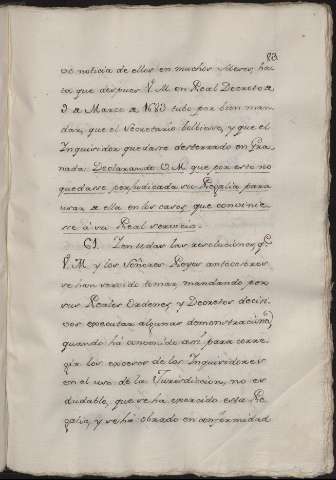 83
vo noticia de ellos en muchos Meses, has
ta que despues V. M. en Real Decreto de
9 de Marzo de 1683 tubo por bien man
dar, que el Secretario bolbiesse, y que el
Inquisidor quedasse desterrado en Gra
nada: Declarando V. M. que por esto no
quedasse perjudicada su Regalia para
usar de ella en los casos que convinie
se à su Real servicio.
61. Con todas las resoluciones, qe
V. M. y los Señores Reyes antecesores
se han servido tomar, mandando por
sus Reales Ordenes, y Decretos decisi
vos executar algunas demonstraciones,
quando ha convenido asi para corre
gir los excesos de los Inquisidores
en el uso de la Jurisdiccion, no es
dudable, que se ha exercido esta Re
galia, y se ha obrado en conformidad